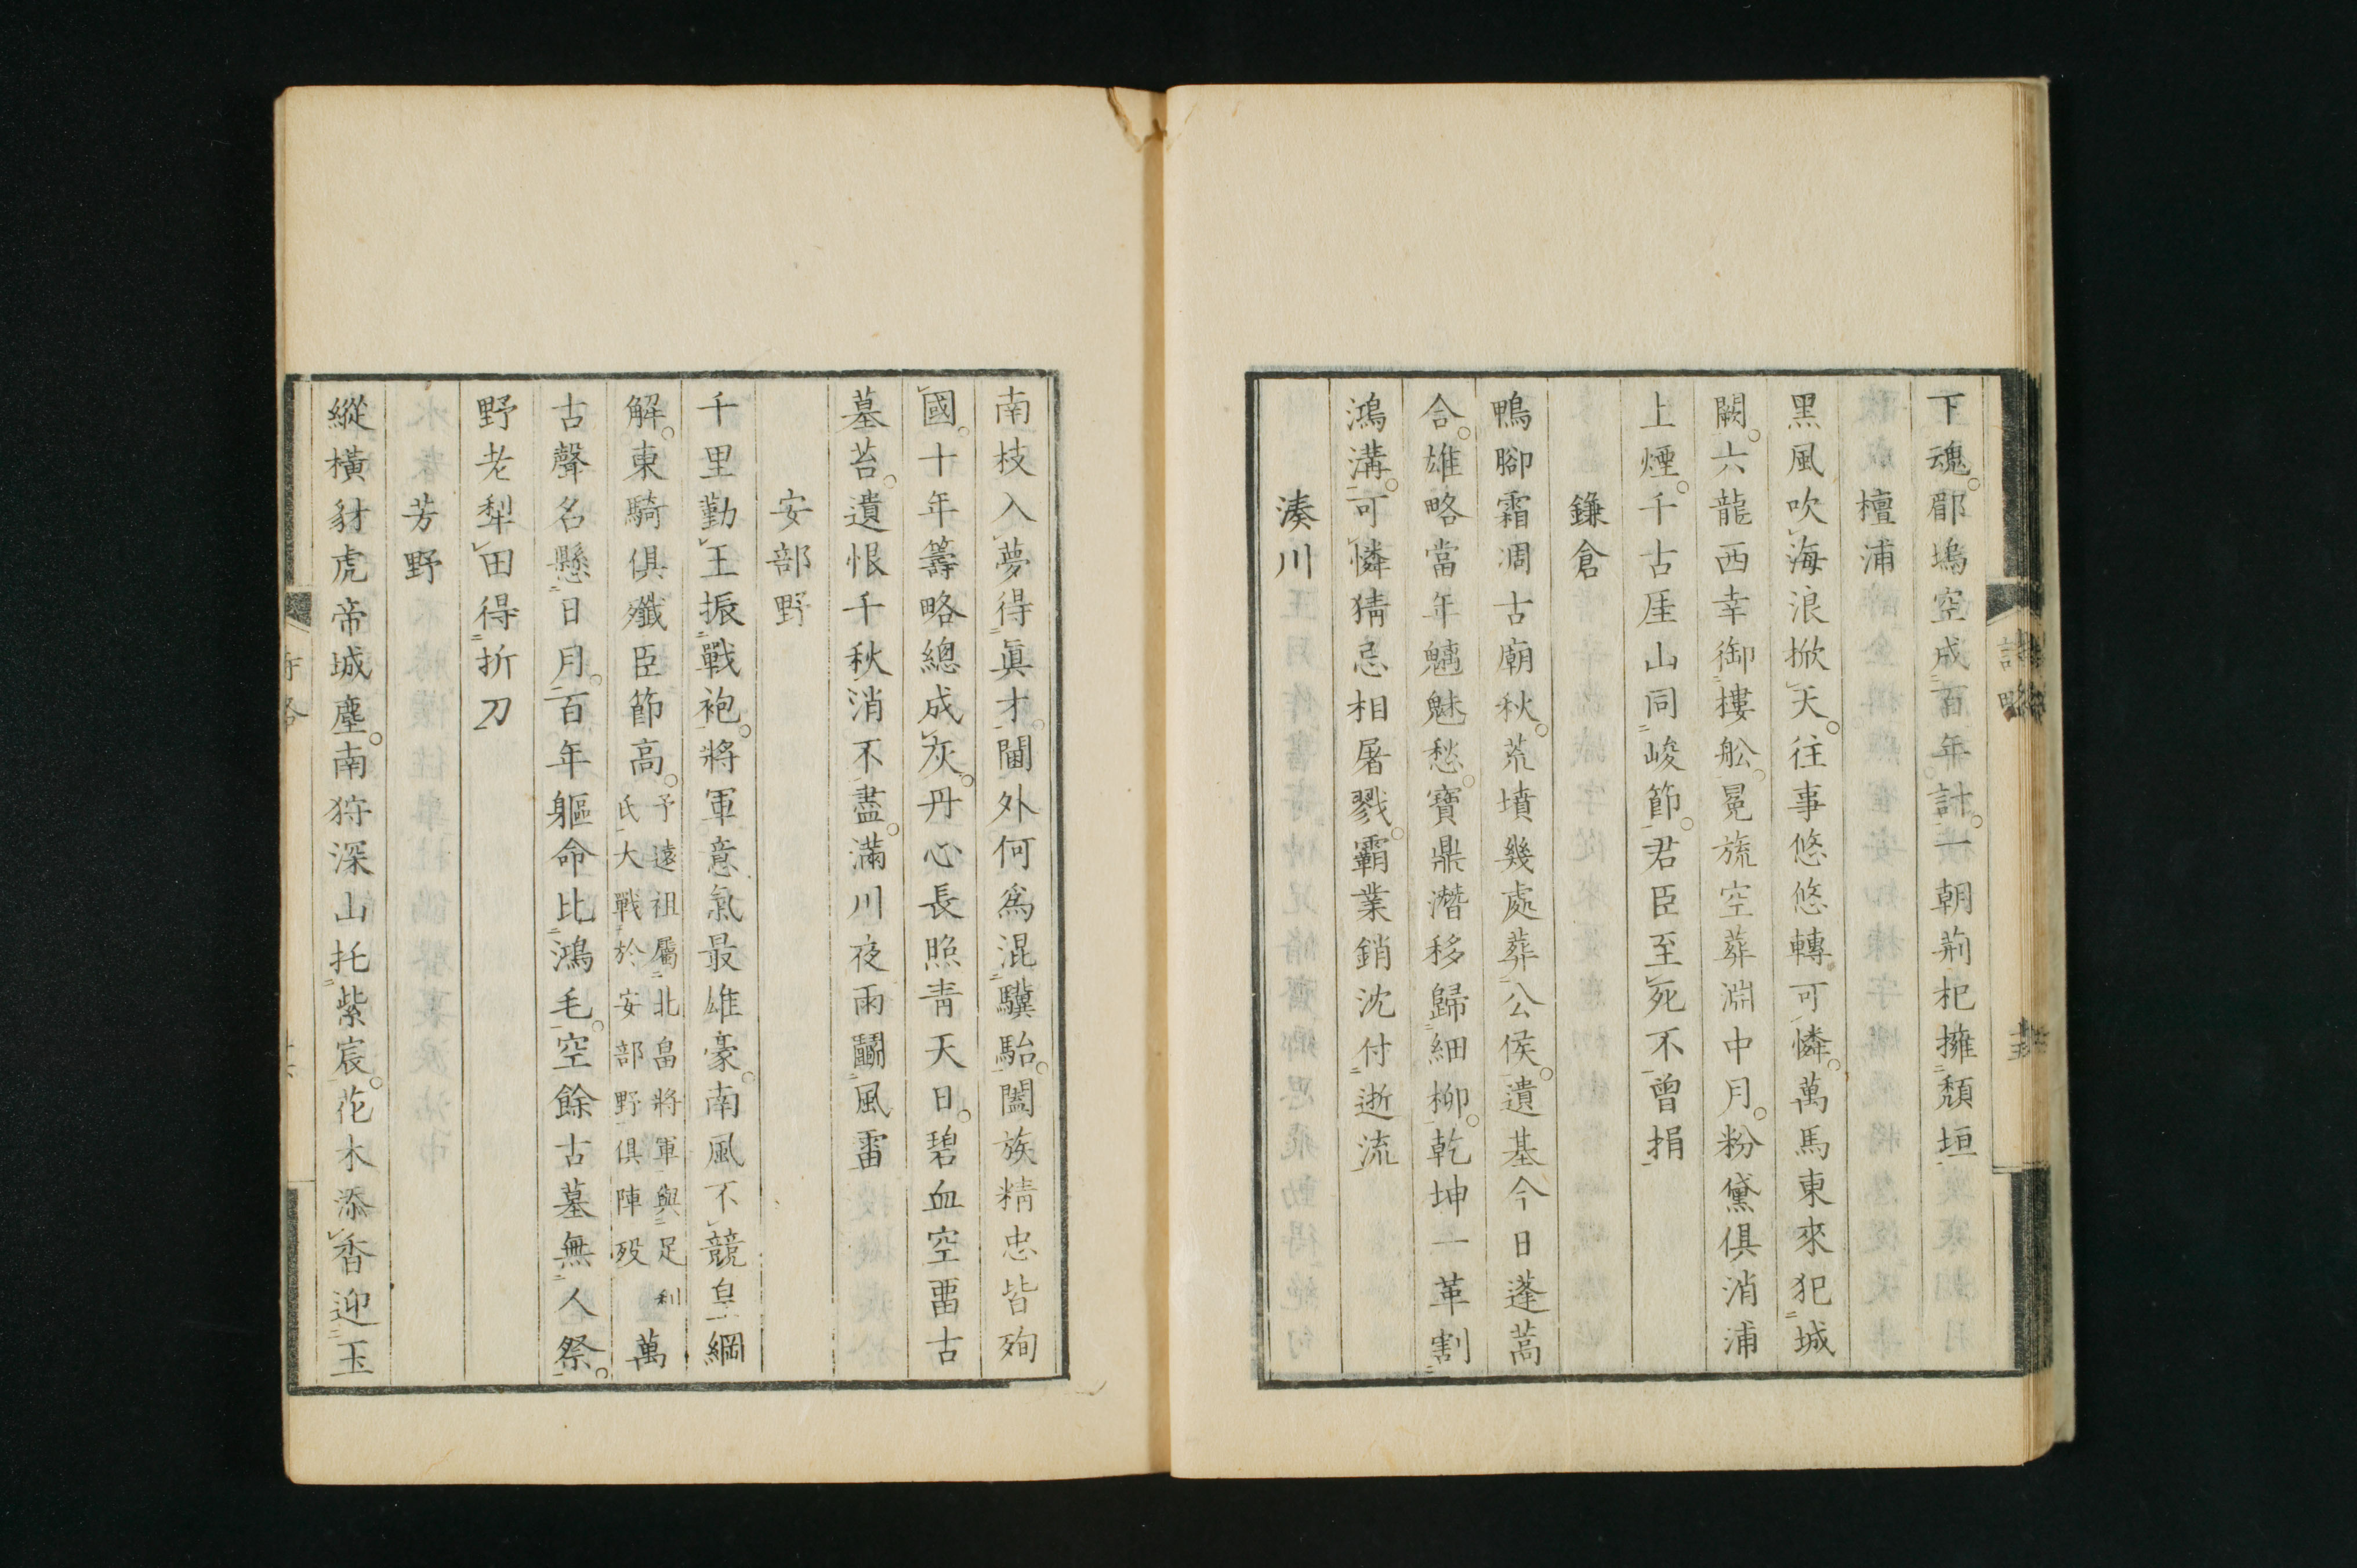 下魂郿塢空成百年計一朝荊杞擁頹垣
檀浦
黒風吹海浪掀天往事悠悠轉可憐萬馬東來犯城
闕六龍西幸御樓舩冕旒空葬淵中月粉黛俱消浦
上煙千古厓山同峻節君臣至死不曽捐
鎌倉
鴨腳霜凋古廟秋荒墳幾處葬公侯遺基今日蓬蒿
合雄略當年魑魅愁寶鼎潛移歸細柳乾坤一革割
鴻溝可憐猜忌相屠戮霸業銷沈付逝流
湊川
南枝入夢得眞才閫外何爲混驥駘闔族精忠皆殉
國十年籌略總成灰丹心長照青天日碧血空畱古
墓苔遺恨千秋消不盡滿川夜雨鬭風雷
安部野
千里勤王振戰袍將軍意氣最雄豪南風不競皇綱
解東騎俱殲臣節高予遠祖屬北畠將軍與足利氏大戰於安部野俱陣歿萬
古聲名懸日月百年軀命比鴻毛空餘古墓無人祭
野老犁田得折刀
芳野
縱橫豺虎帝城塵南狩深山托紫宸花木添香迎玉